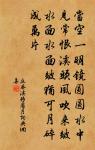 當空一明鏡圓圓水中
見常恨溪頭風吹來皺
水面水面皺猶可月碎
成萬片